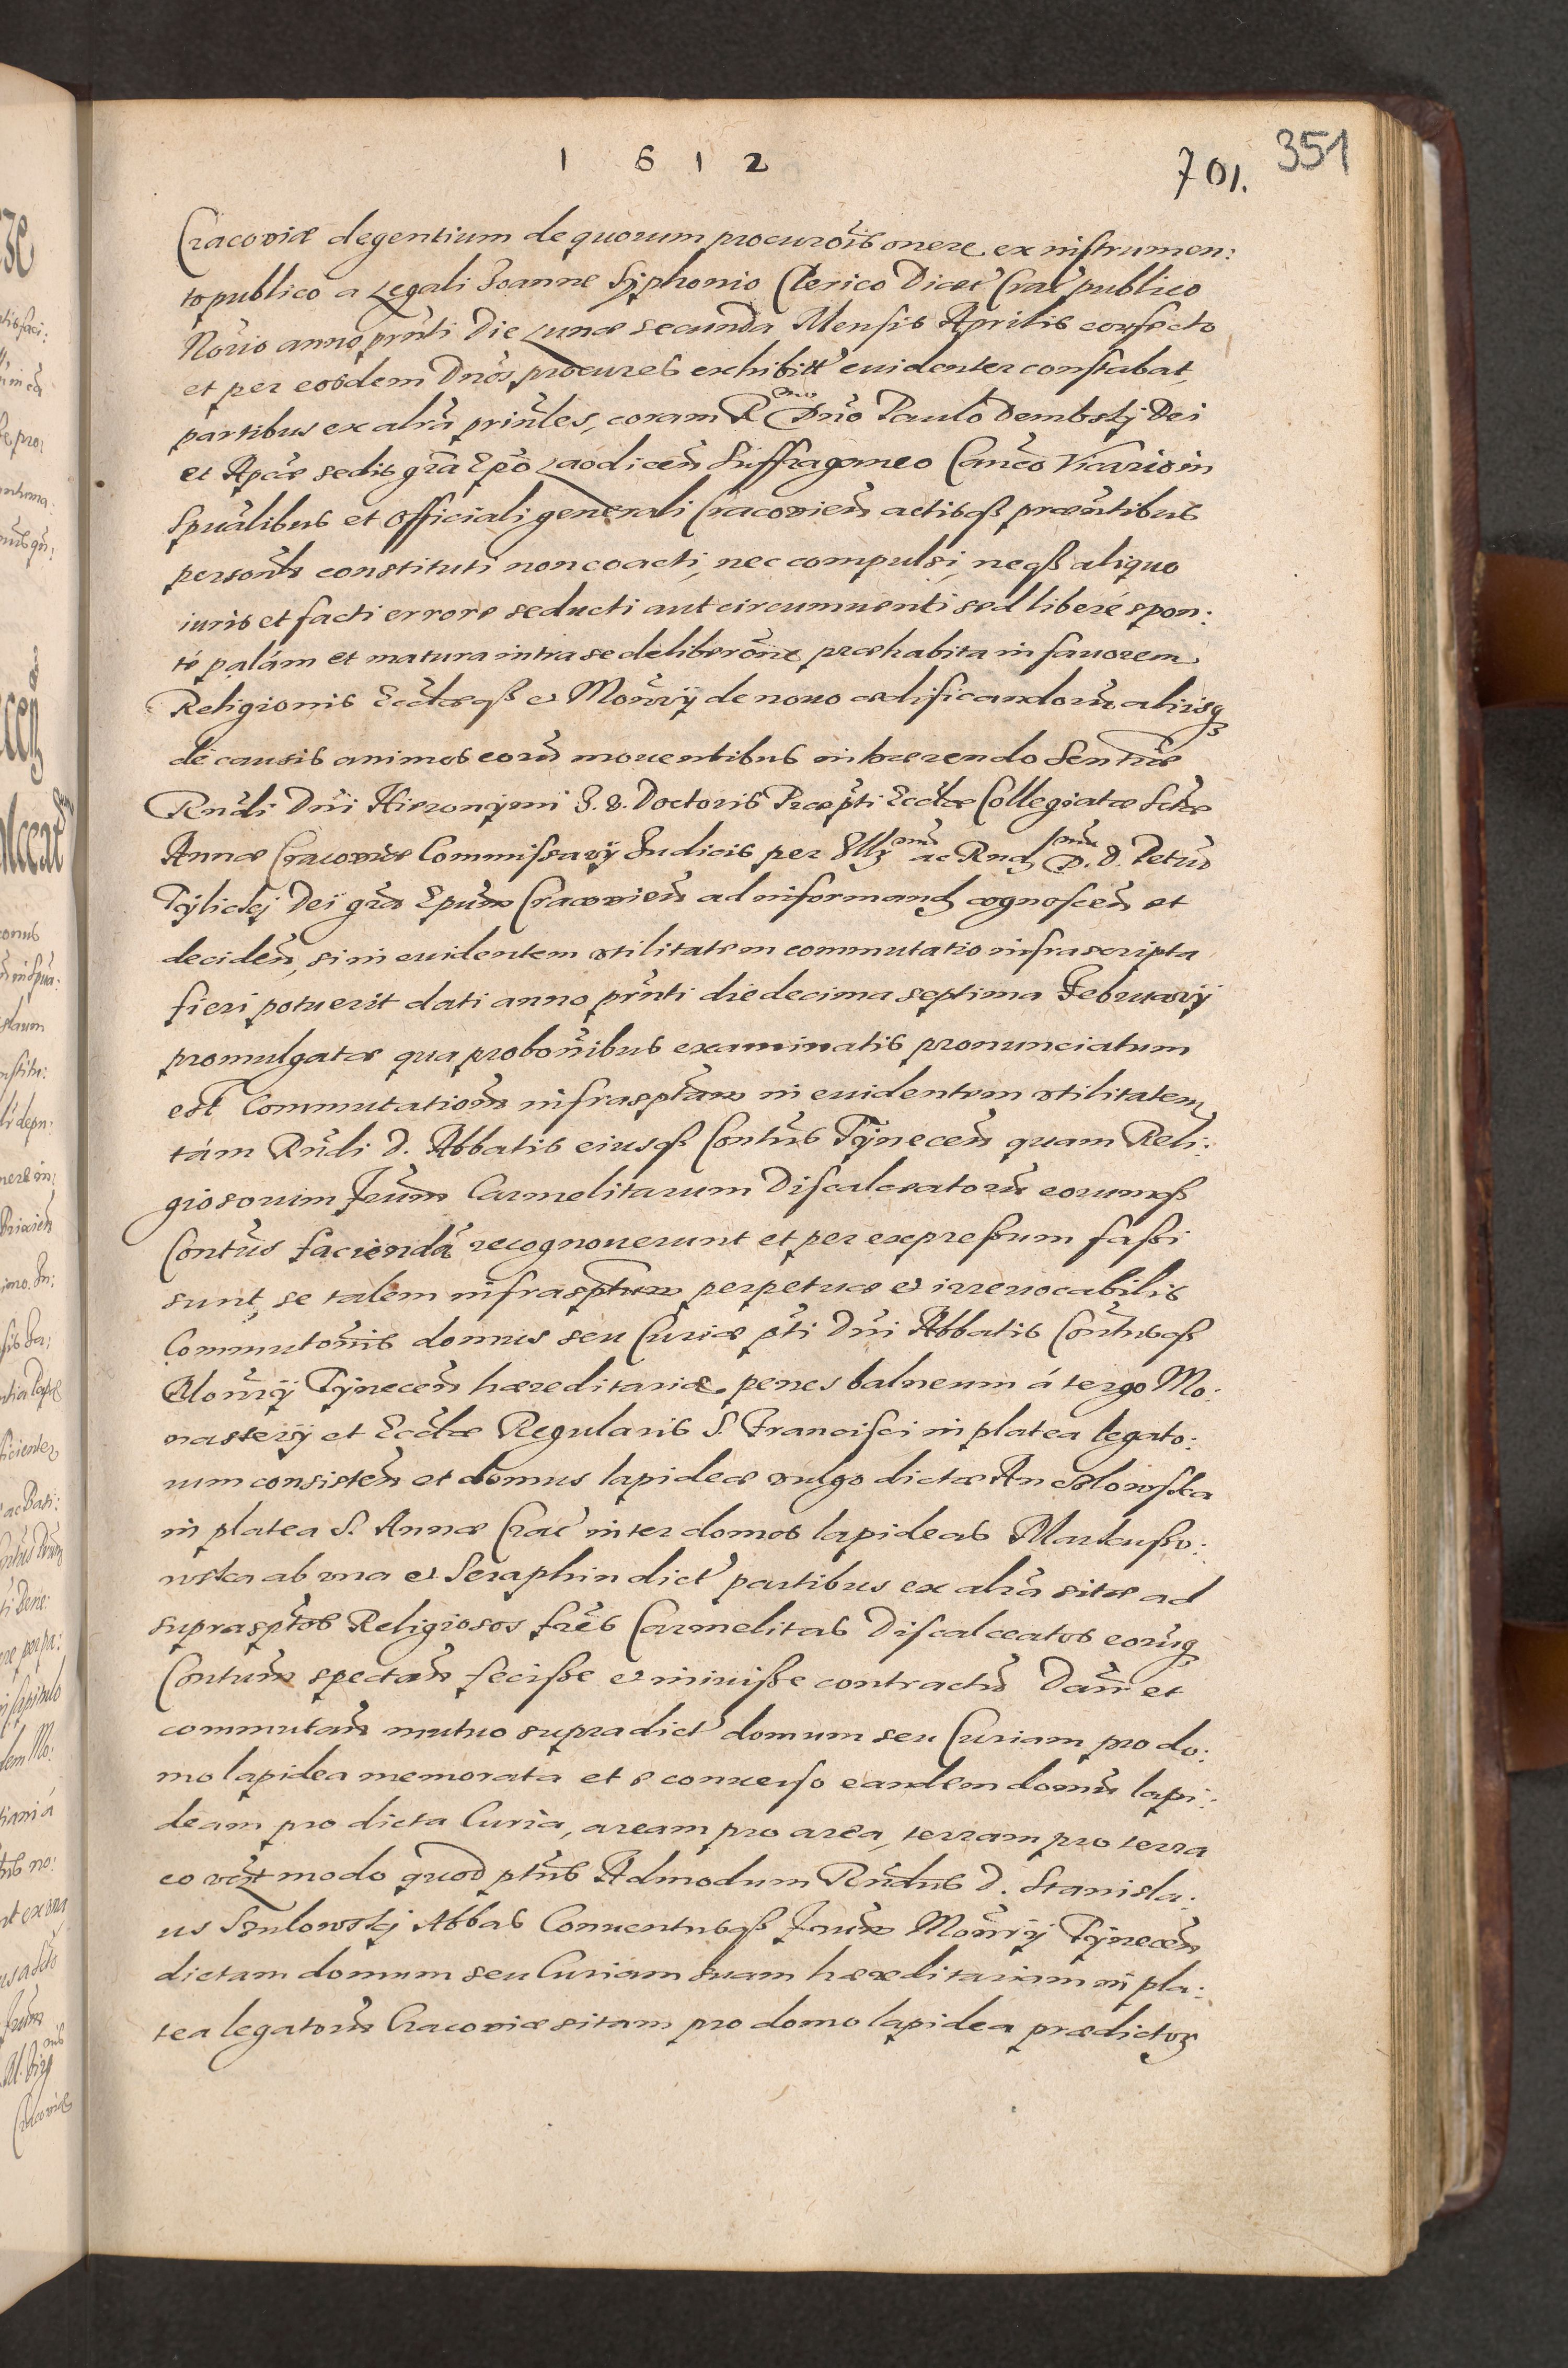 1 6 1 2
701. 351
Cracoviæ degentium de quorum procurõis onere ex instrumen:
to publico a Legali Joanne Syphonio Clerico Diæc Crac publico
Norio anno prnti Die Lunæ secunda Mensis Aprilis confecto
et per eosdem Dnos procures exhibitt evidenter constabat,
partibus ex alra prinles, coram R mo Dno Paulo Dembskj Dei
et Aplicæ sedis gra Epo Laodicen Suffraganeo Canco Vicario in
Spualibus et Officiali generali Cracovien actisqß præntibus
personlr constituti non coacti, nec compulsi, neqß aliquo
iuris et facti errore seducti aut circumuenti sed liberé spon:
té palám et matura intra se deliberone præhabita in fauorem
Religionis Ecclæqß et Monrij de nouo ædificandorum aliisq
de causis animos eorum mouentibus inhærendo Sentiæ
Rndi Dni Hieronymi J. V. Doctoris Præpti Ecclæ Collegiatæ Sctæ
Annæ Cracoviæ Commissarij Judicis per Illm ac Rnd D. D. Petrum
Tylickj Dei gra Epum Cracovien ad informand cognoscen et
deciden, si in euidentem vtilitatem commutatio infrascripta
fieri potuerit dati anno prnti die decima septima Februarij
promulgatæ qua probonibus examinatis pronunciatum
est Commutationem infrasptam in euidentem vtilitatem
tám Rndi D. Abbatis eiusqß Contus Tynecen quam Reli:
giosorum frum Carmelitarum Discalceatorum eorumqß
Contus faciendá recognouerunt et per expressum fassi
sunt, se talem infrasptum perpetuæ et irreuocabilis
Commutonis domus seu Curiæ pti Dni Abbatis Contusqß
Monrij Tynecen hæreditariæ penes balneum á tergo Mo:
nasterij et Ecclæ Regularis S. Francisci in platea legato:
rum consisten et domus lapideæ vulgo dictæ
in platea S. Annæ Crac inter domos lapideas
ab vna et Seraphin dict partibus ex alra sitæ ad
suprasptos Religiosos fres Carmelitas Discalceatos eorumq
Contum spectan fecisse et iniuisse contractum Dan et
commutan mutuo supradict domum seu Curiam pro do:
mo lapidea memorata et e conuerso eandem domum lapi:
deam pro dicta Curia, aream pro area, terram pro terra
eo modo quod ptus Admodum Rndus D. Stanisla:
us Szulowskj Abbas Conuentusqß frum Monrij Tynecen
dictam domum seu Curiam suam hæreditariam in pla:
tea legatorum Cracoviæ sitam pro domo lapidea prædictor